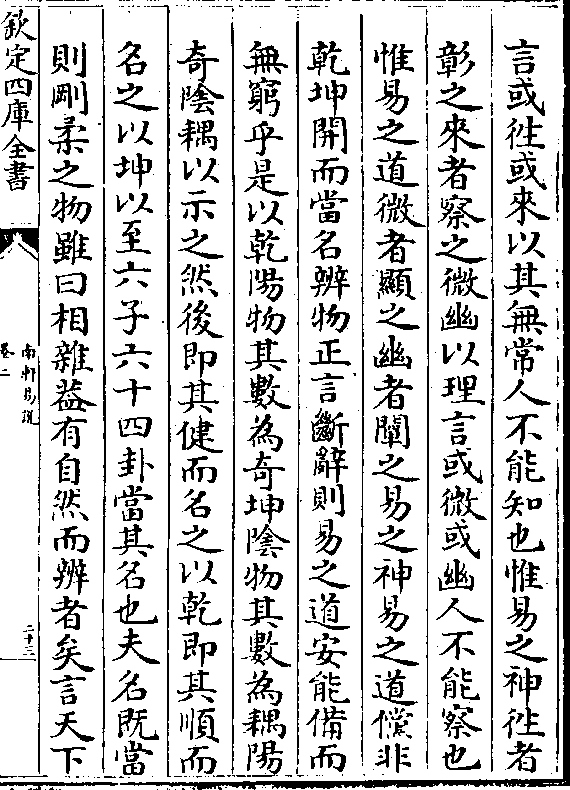 言或徃或來以其無常人不能知也惟易之神徃者
彰之來者察之微幽以理言或微或幽人不能察也
惟易之道微者顯之幽者闡之易之神易之道儻非
乾坤開而當名辨物正言斷辭則易之道安能備而
無窮乎是以乾陽物其數為奇坤陰物其數為耦陽
奇陰耦以示之然後即其健而名之以乾即其順而
名之以坤以至六子六十四卦當其名也夫名既當
則剛柔之物雖曰相雜葢有自然而辨者矣言天下
欽定四庫全書
南軒易說
卷二
二十三